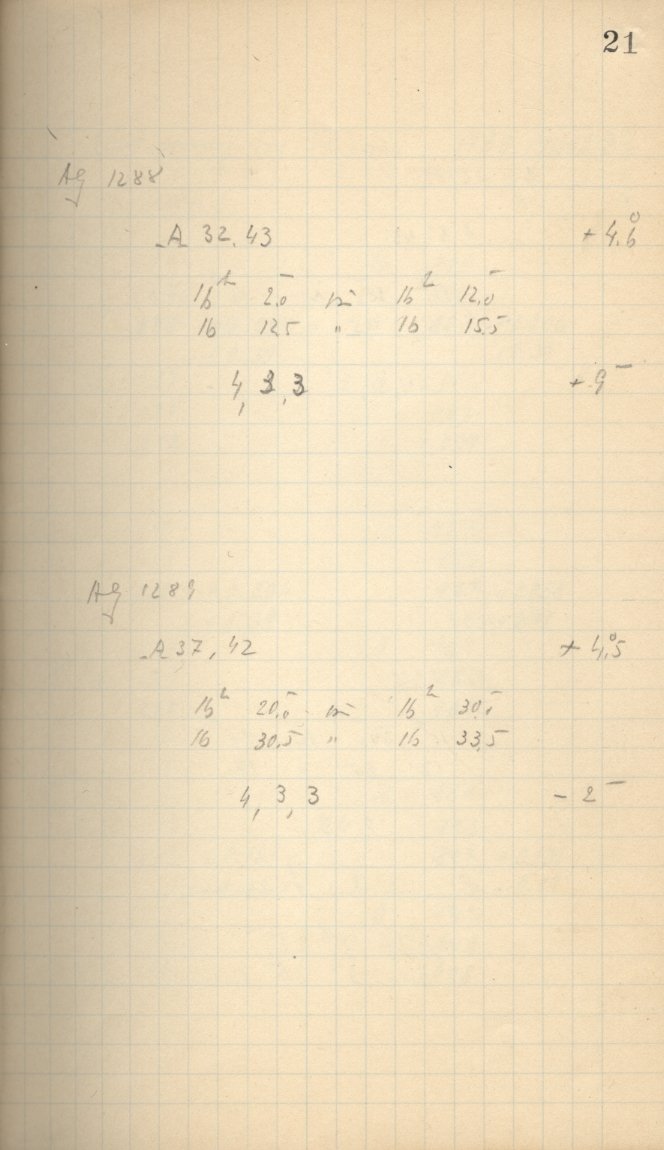 21
AG 1288
A 32, 43 +4,6°
16ʰ 2,0⁻ 16ʰ 12,0⁻
16 12,5 " 16 15,5
4, 3, 3 + 9⁻
AG 1289
A 37, 42 +4,5°
16ʰ 20,0⁻ 16ʰ 30,⁻
16 30,5 " 16 33,5
4, 3, 3 - 2⁻